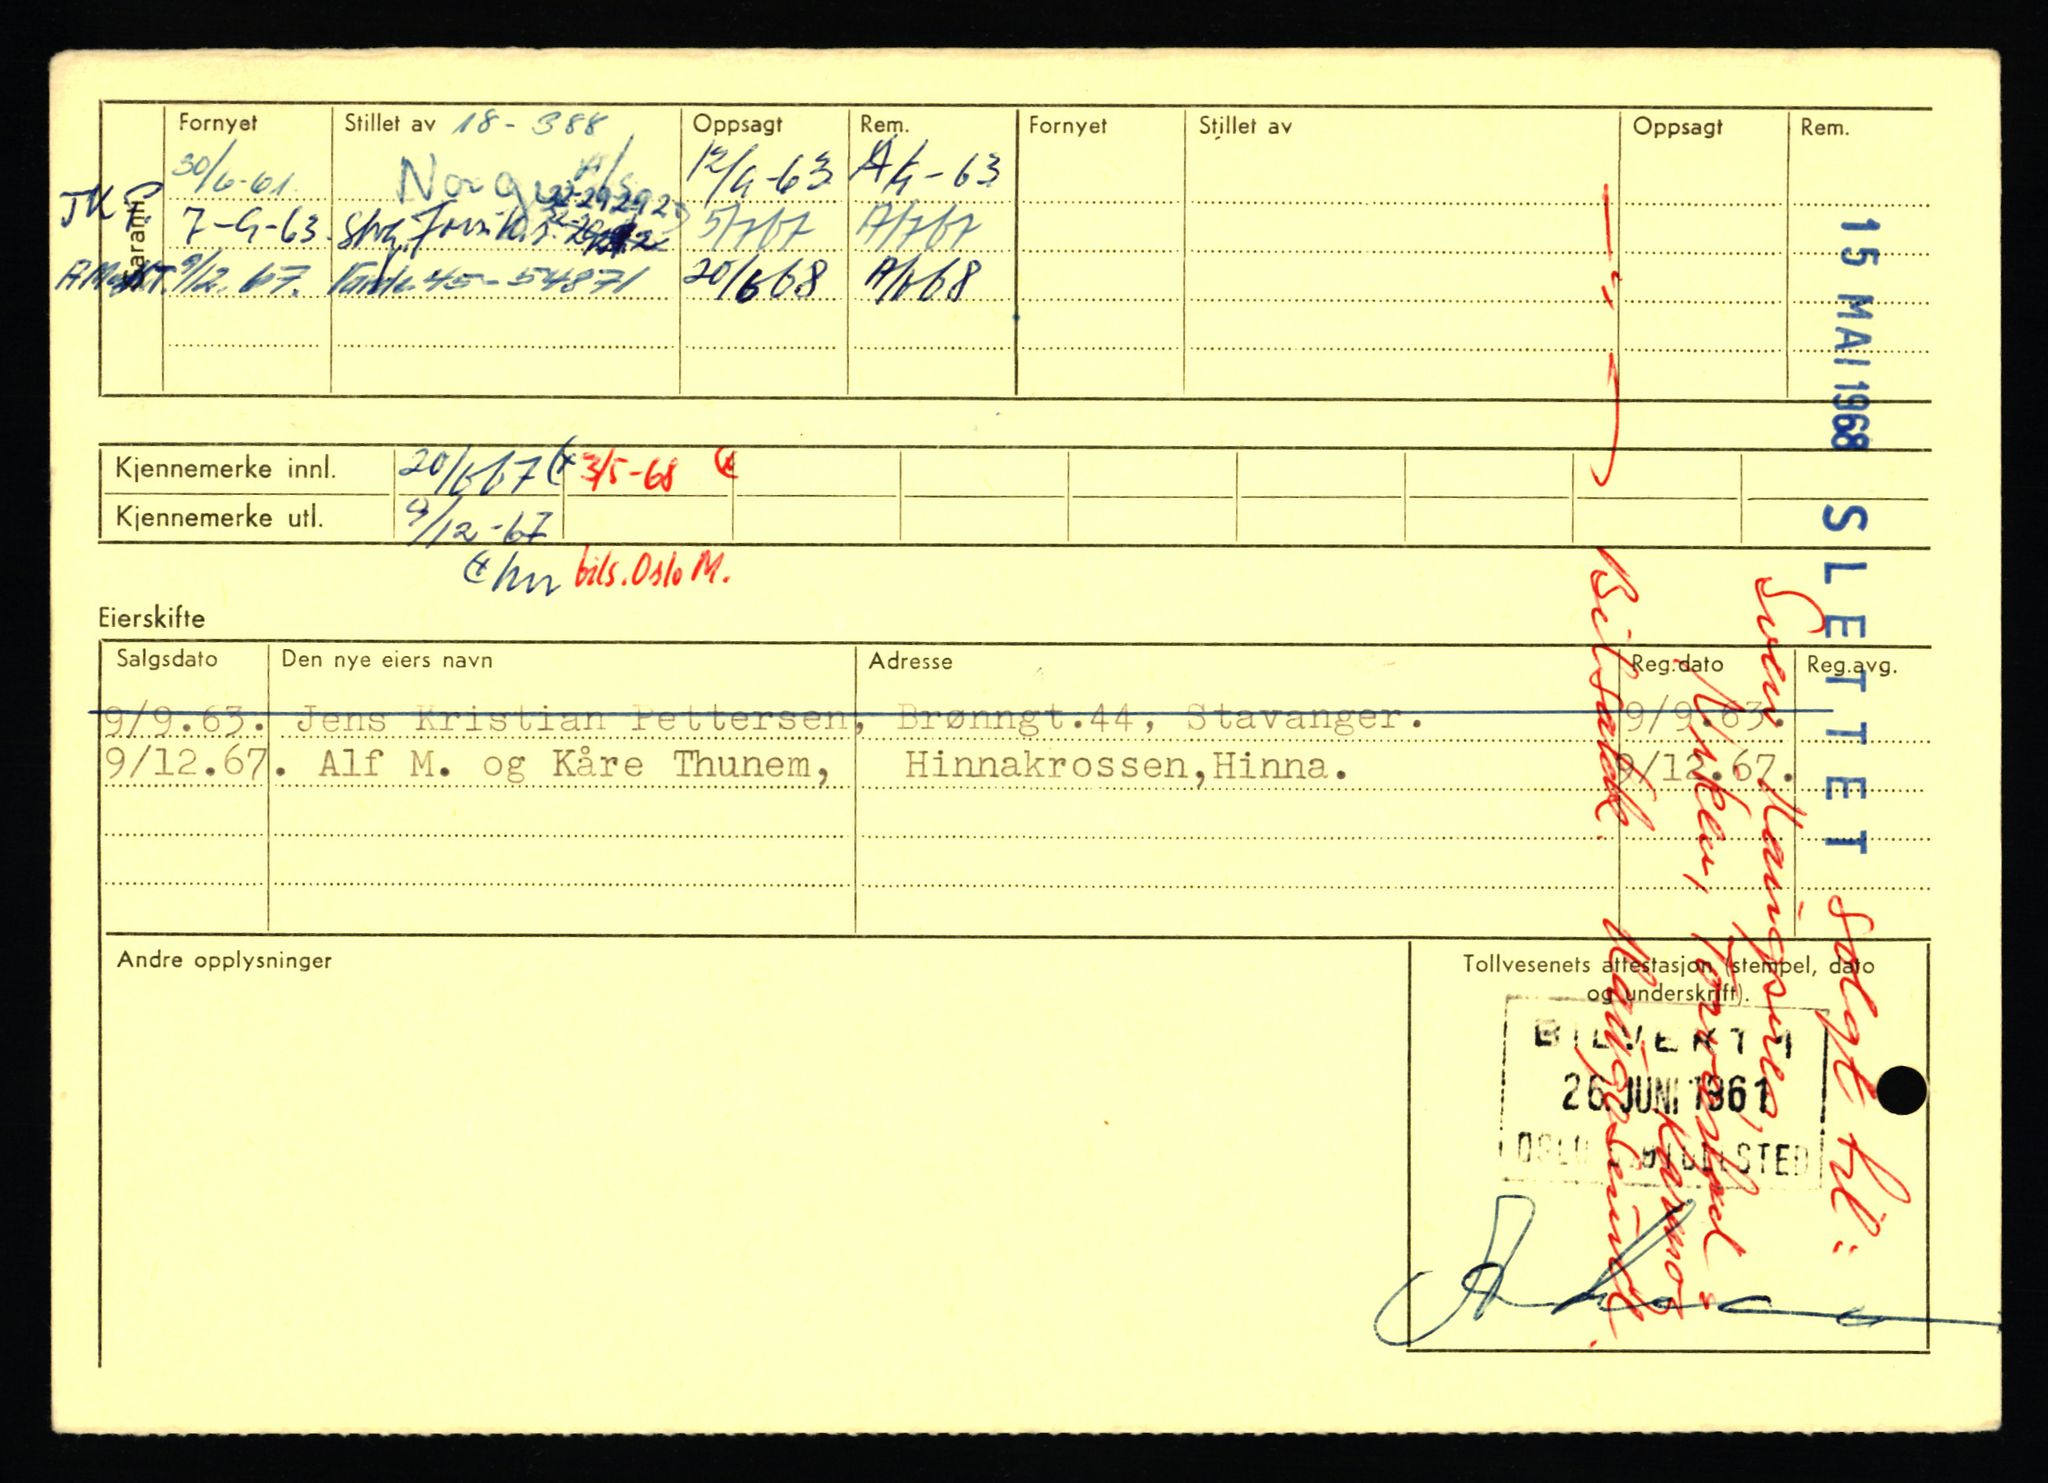 Garanti
Fornyet Stillet av 18-388 Oppsagt Rem. Fornyet Stillet av Oppsagt Rem.
30/6-61. Norges 12/9-63 A/9-63
JKP 7-9-63. Stvg. 5/7 67 A/7 67
9/12.67. 45-54871 20/6 68 A/6 68
Kjennemerke innl. 20/6 67 3/5-68
Kjennemerke utl. 9/12-67
bils. Oslo M.
Eierskifte
Salgsdato Den nye eiers navn Adresse Reg.dato Reg.avg.
9/9.63. Jens Kristian Pettersen, Brønngt.44, Stavanger. 9/9.63.
9/12.67. Alf M. og Kåre Thunem, Hinnakrossen,Hinna. 9/12.67.
Andre opplysninger
Tollvesenets attestasjon (stempel, dato
og underskrift).
26 JUNI 1961
15 MAI 1968 SLETTET
Solgt til:
Karmøy
Bilsakk. Haugesund.